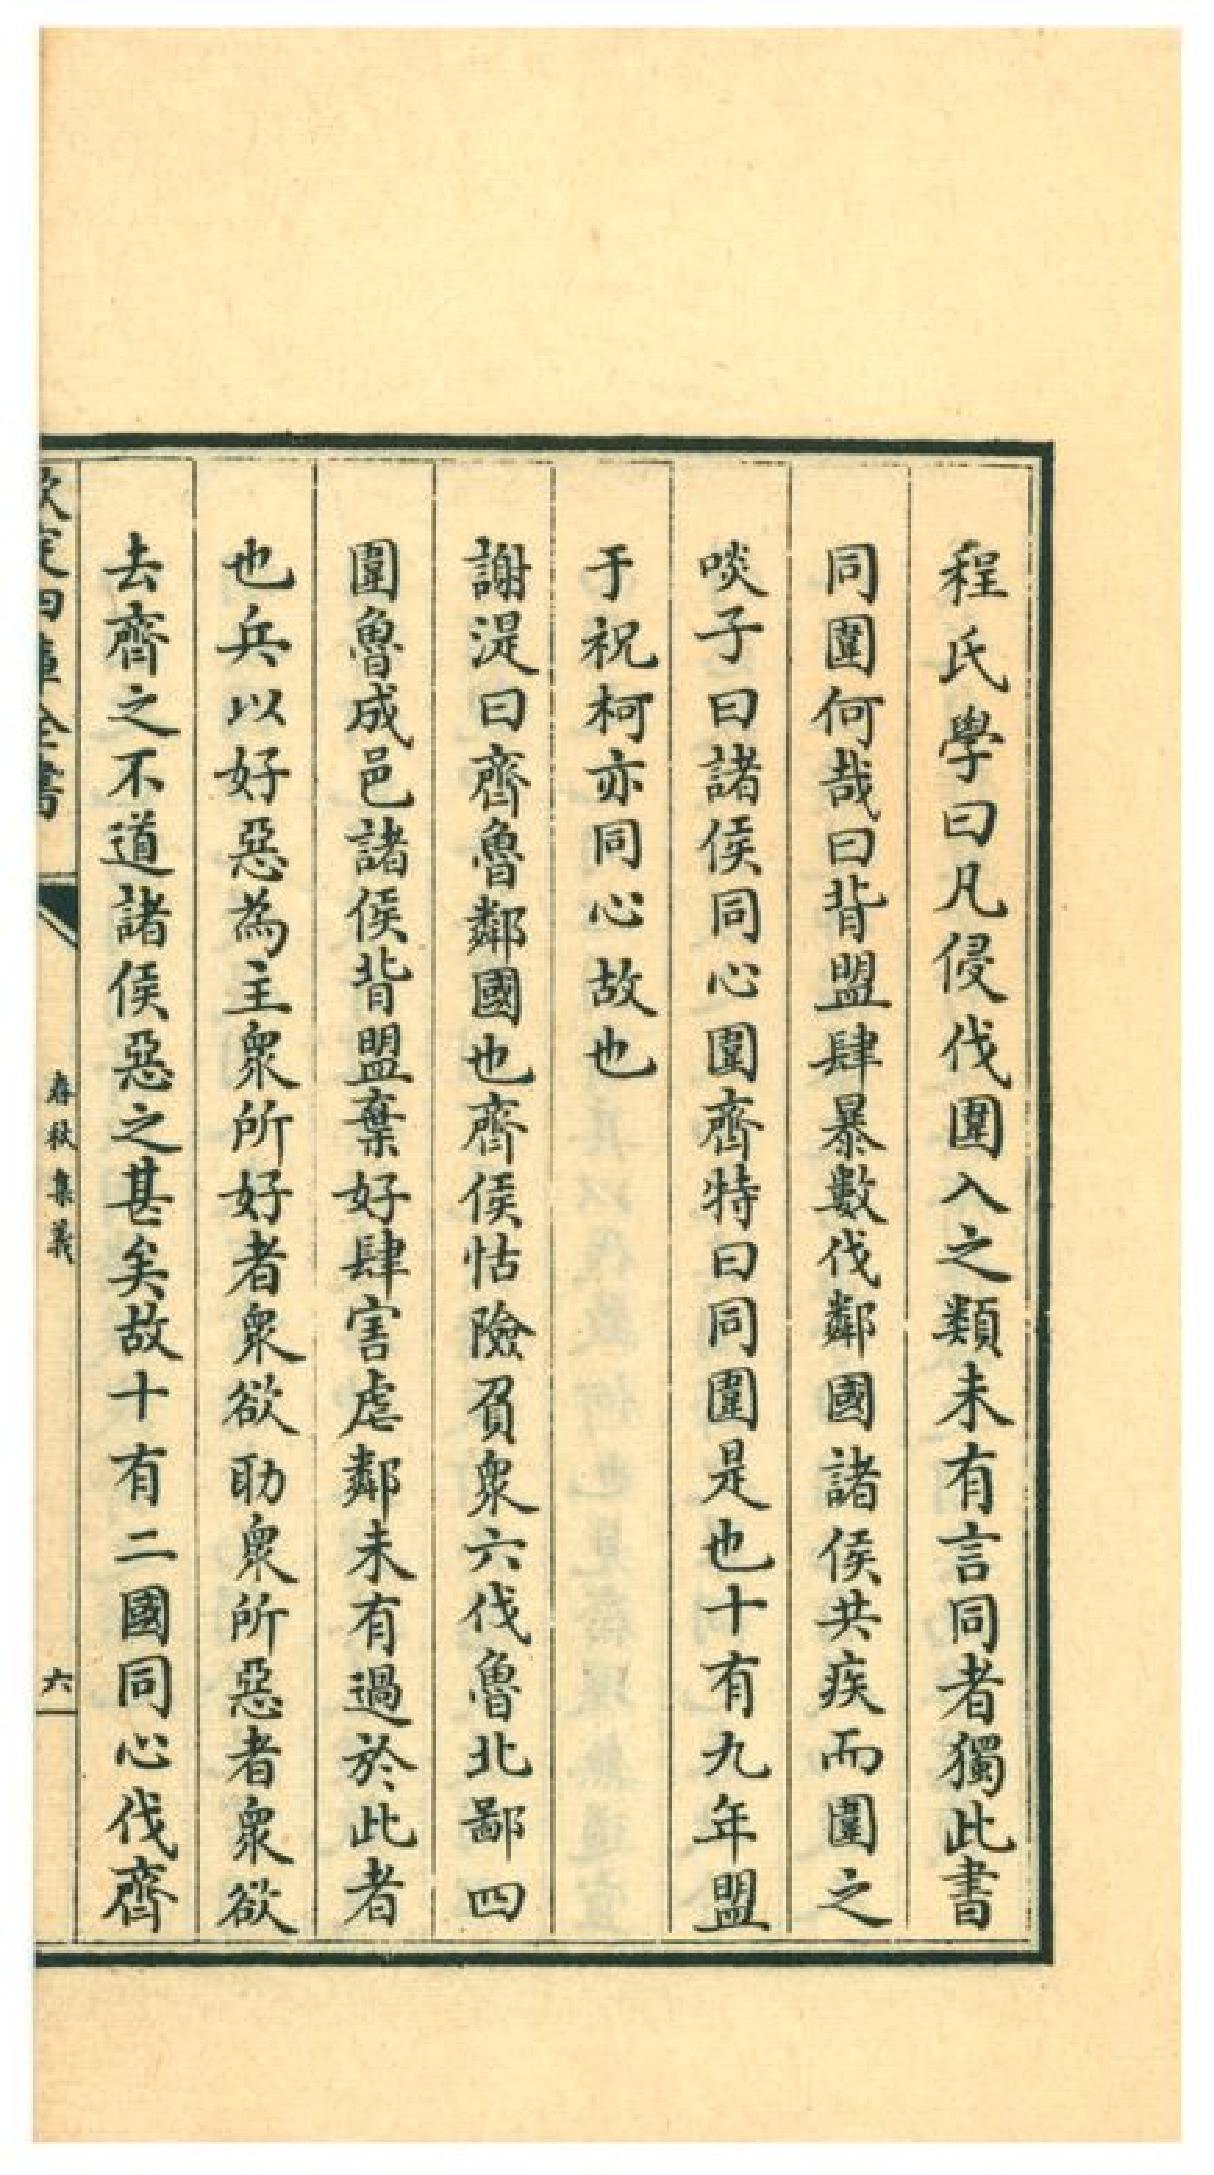 程氏學曰凡侵伐圍入之類未有言同者獨此書
同圍何哉曰背盟肆暴數伐鄰國諸侯共疾而圍之
啖子曰諸侯同心圍齊特曰同圍是也十有九年盟
于祝柯亦同心故也
謝湜曰齊魯鄰國也齊侯怙險負衆六伐魯北鄙四
圍魯成邑諸侯背盟棄好肆害虐鄰未有過於此者
也兵以好惡為主衆所好者衆欲助衆所惡者衆欲
去齊之不道諸侯惡之甚矣故十有二國同心伐齊
欽定四庫全書
春秋集義
六